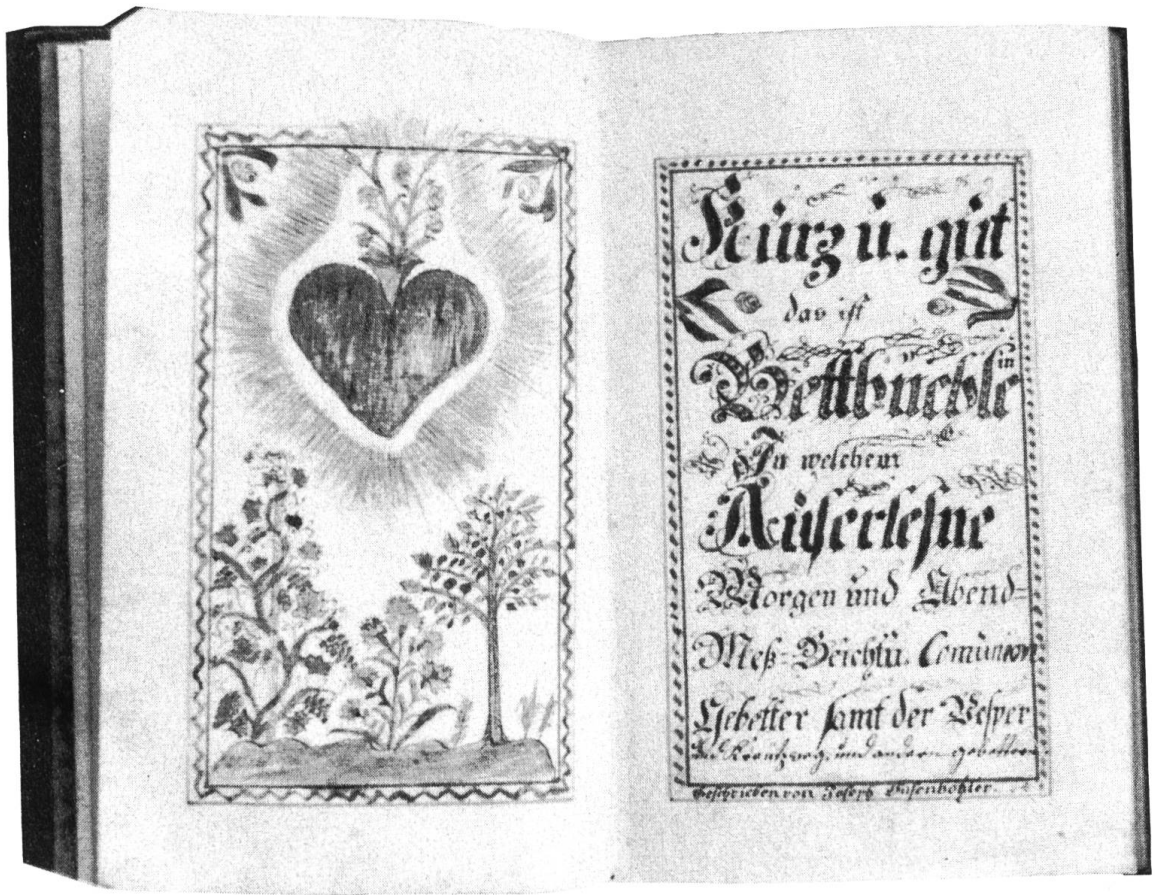 Kurz ŭ. gŭt
das ist
Bettbuchlein
In welchem
Aŭserlesne
Morgen ŭnd Abend=
Meß=Beicht ŭ. Comŭnion
Gebetter samt der Vesper
und Kreutzweg, und andern gebettern
Geschrieben von Joseph